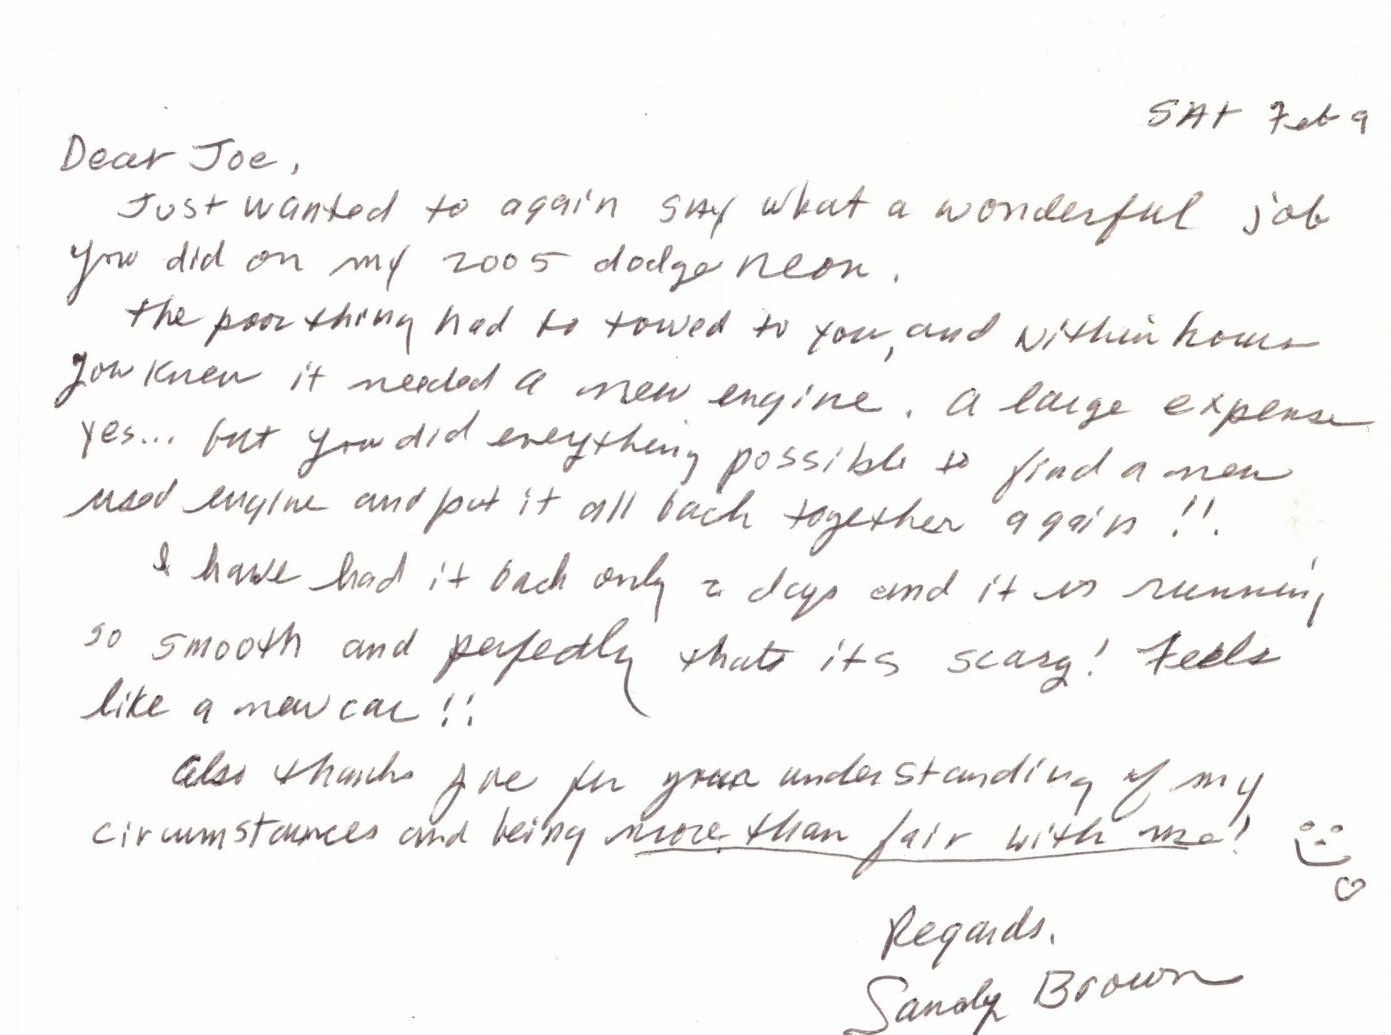 SAt Feb 9
Dear Joe,
Just wanted to again say what a wonderful job
you did on my 2005 dodge neon.
the poor thing had to towed to you, and within hours
you knew it needed a new engine. A large expense
yes... but you did everything possible to find a new
used engine and put it all back together again !!
I have had it back only 2 days and it is running
so smooth and perfectly thats its scary! Feels
like a new car !!
Also thanks Joe for your understanding of my
circumstances and being more than fair with me!
Regards.
Sandy Brown